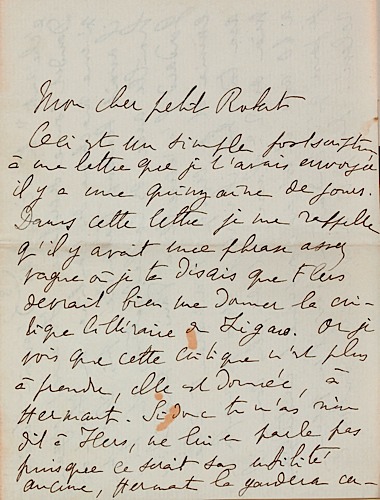 Mon cher petit Robert
Ceci est un simple postscriptum
à une lettre que je t'avais envoyée
il y a une quinzaine de jours.
Dans cette lettre je me rappelle
qu'il y avait une phrase assez
vague où je te disais que Flers
devrait bien me donner la cri-
tique littéraire du Figaro. Or je
vois que cette critique n'est plus
à prendre, elle est donnée, à
Hermant. Si donc tu n'as rien
dit à Flers, ne lui en parle pas
puisque ce serait sans utilité
aucune, Hermant la gardera cer-